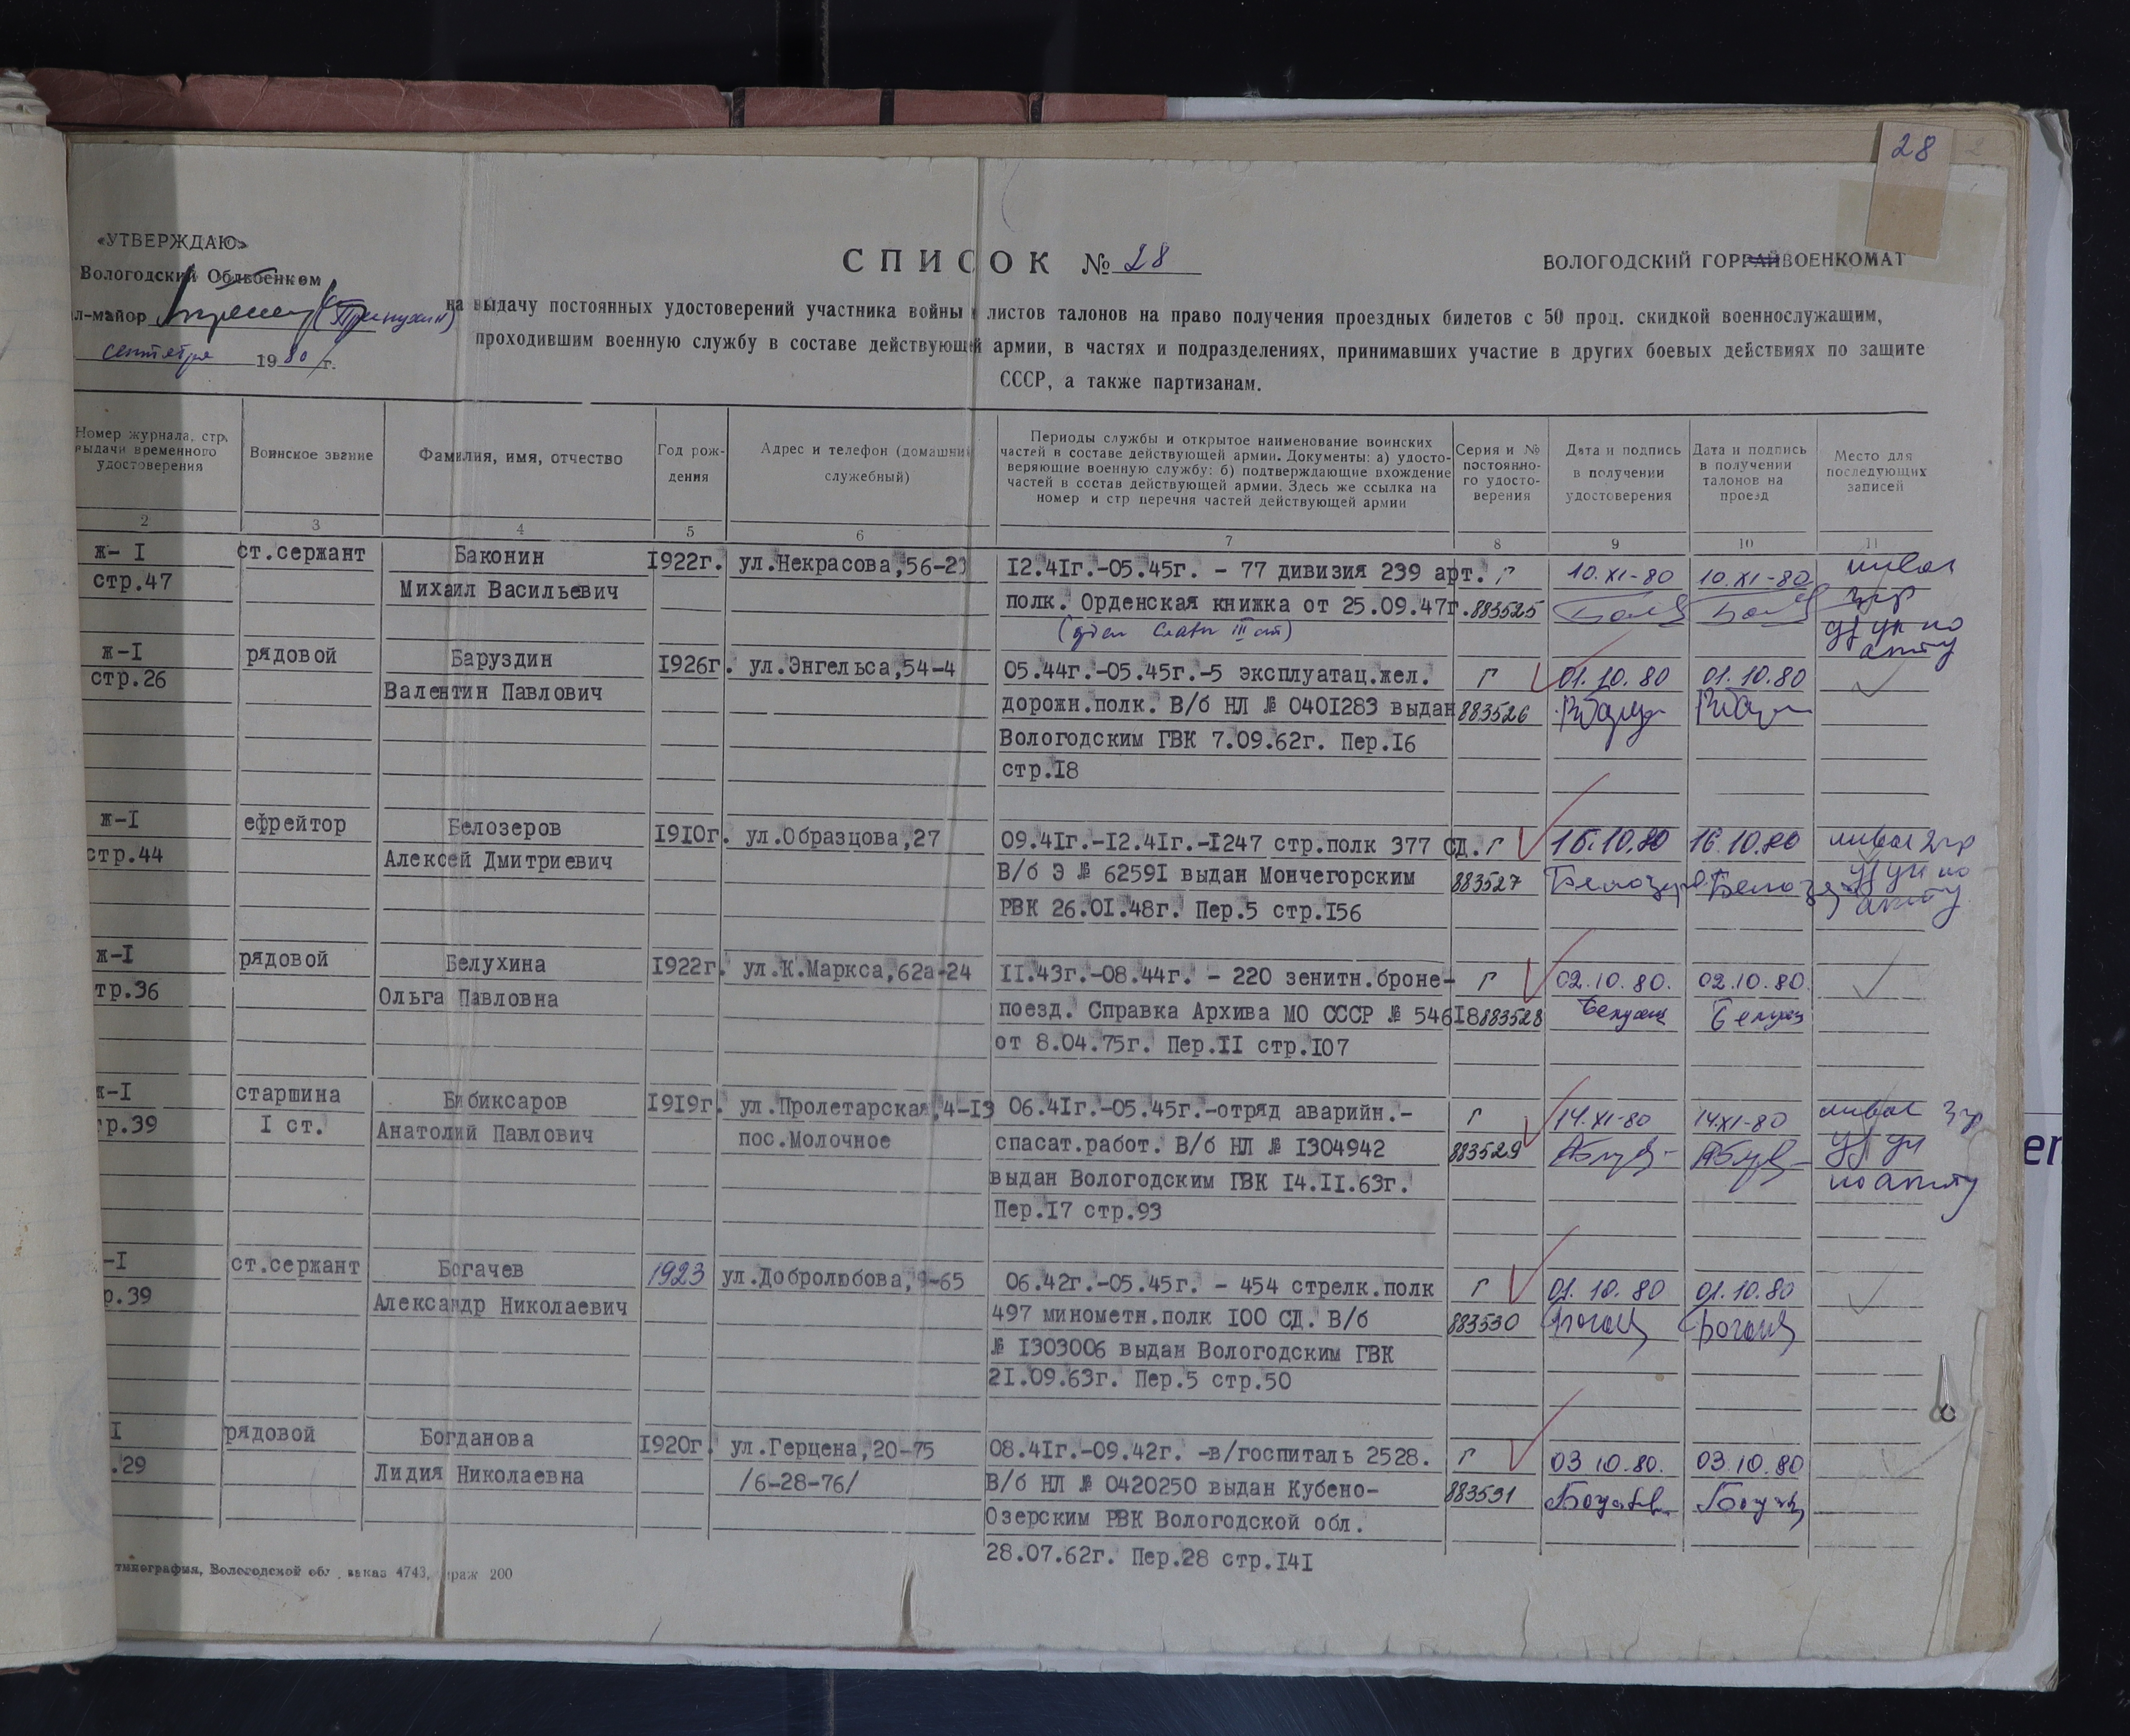 28
«УТВЕРЖДАЮ»
Вологодский Облвоенком
л-майор
сентября 1980 г.
СПИСОК № 28
ВОЛОГОДСКИЙ ГОРРАЙВОЕНКОМАТ
на выдачу постоянных удостоверений участника войны и листов талонов на право получения проездных билетов с 50 проц. скидкой военнослужащим,
проходившим военную службу в составе действующей армии, в частях и подразделениях, принимавших участие в других боевых действиях по защите
СССР, а также партизанам.
Номер журнала, стр. выдачи временного удостоверения
Воинское звание
Фамилия, имя, отчество
Год рож-
дения
Адрес и телефон (домашний
служебный)
Периоды службы и открытое наименование воинских
частей в составе действующей армии. Документы: а) удосто-
веряющие военную службу: б) подтверждающие вхождение
частей в состав действующей армии. Здесь же ссылка на
номер и стр перечня частей действующей армии
Серия и №
постоянно-
го удосто-
верения
Дата и подпись
в получении
удостоверения
Дата и подпись
в получении
талонов на
проезд
Место для
последующих
записей
2 3 4 5 6 7 8 9 10 11
ж- I ст.сержант Баконин 1922г. ул.Некрасова,56-23 12.41г.-05.45г. - 77 дивизия 239 арт. Г 10.XI-80 10.XI-80
стр.47 Михаил Васильевич полк. Орденская книжка от 25.09.47г. 883525
ж-I рядовой Баруздин 1926г. ул.Энгельса,54-4 05.44г.-05.45г.-5 эксплуатац.жел. Г 01.10.80 01.10.80
стр.26 Валентин Павлович дорожн.полк. В/б НЛ № 0401283 выдан 883526
Вологодским ГВК 7.09.62г. Пер.16
стр.18
ж-I ефрейтор Белозеров 1910г. ул.Образцова,27 09.41г.-12.41г.-1247 стр.полк 377 СД. Г 16.10.80 16.10.80
стр.44 Алексей Дмитриевич В/б Э № 62591 выдан Мончегорским 883527
РВК 26.01.48г. Пер.5 стр.156
ж-I рядовой Белухина 1922г. ул.К.Маркса,62а-24 11.43г.-08.44г. - 220 зенитн.броне- Г 02.10.80. 02.10.80.
тр.36 Ольга Павловна поезд. Справка Архива МО СССР № 54618 883528
от 8.04.75г. Пер.11 стр.107
ж-I старшина Бибиксаров 1919г. ул.Пролетарская,4-13 06.41г.-05.45г.-отряд аварийн.- Г 14.XI-80 14.XI-80
р.39 I ст. Анатолий Павлович пос.Молочное спасат.работ. В/б НЛ № 1304942 883529
выдан Вологодским ГВК 14.11.63г.
Пер.17 стр.93
-I ст.сержант Богачев 1923 ул.Добролюбова,9-65 06.42г.-05.45г. - 454 стрелк.полк Г 01.10.80 01.10.80
р.39 Александр Николаевич 497 минометн.полк 100 СД. В/б 883530
№ 1303006 выдан Вологодским ГВК
21.09.63г. Пер.5 стр.50
I рядовой Богданова 1920г. ул.Герцена,20-75 08.41г.-09.42г. -в/госпиталь 2528. Г 03.10.80. 03.10.80
.29 Лидия Николаевна /6-28-76/ В/б НЛ № 0420250 выдан Кубено- 883531
Озерским РВК Вологодской обл.
28.07.62г. Пер.28 стр.141
типография, Вологодской обл., заказ 4743, ираж 200